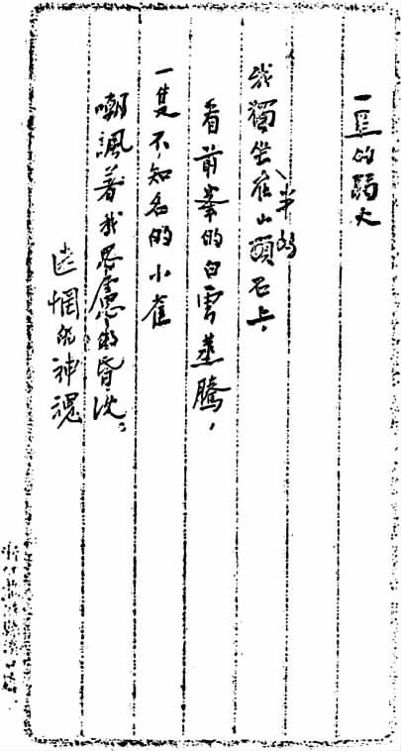 一星的弱火
半的
我獨坐在山頭石上，
看前峯的白雲蒸騰，
一隻不知名的小雀
嘲諷着我思慮的昏沈。
迷惘的神魂